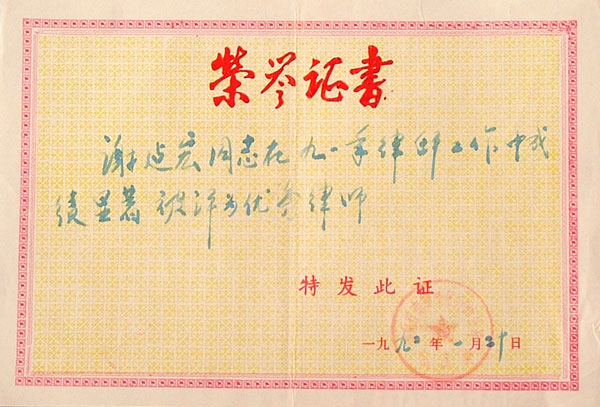 荣誉证書
谢延宏同志在九一年律师工作中成
绩显著被评为优秀律师
特发此证
一九九二年一月二十日